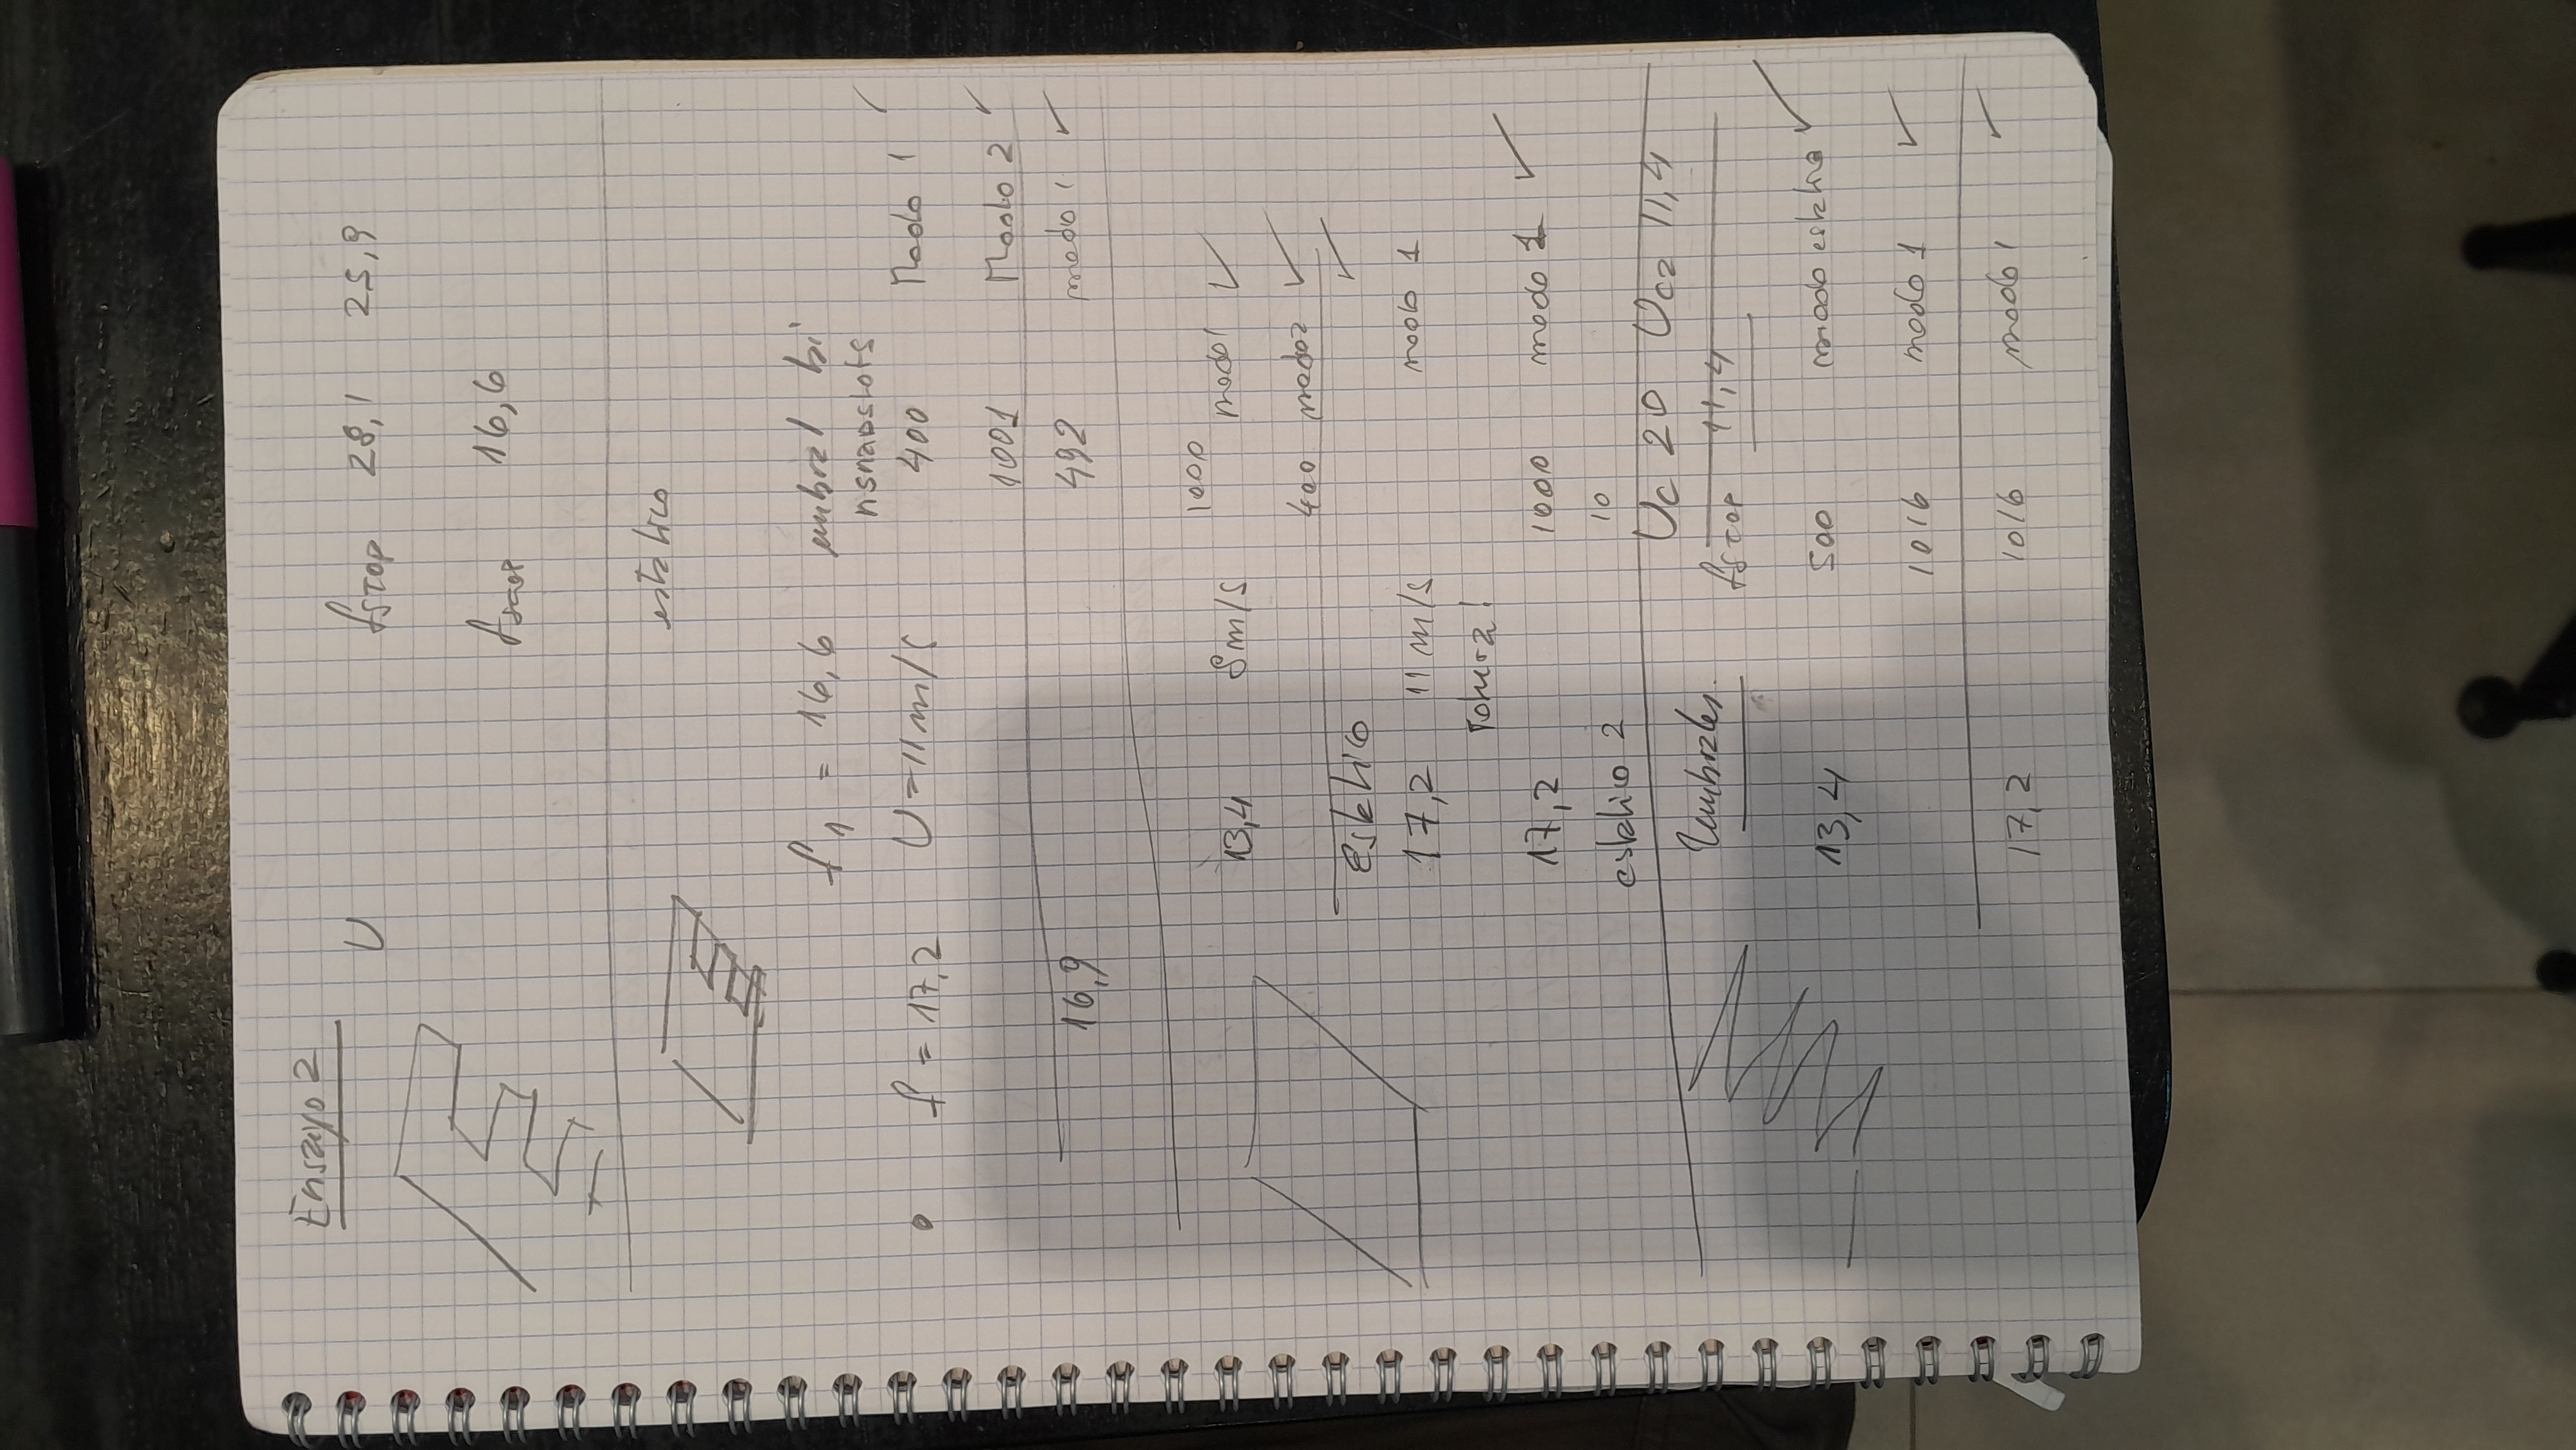 Ensayo 2
U fSTOP 28,1 25,9
fstop 16,6
estatico
f1 = 16,6 umbral bi
nsnapshots
f = 17,2 U = 11 m/s 400 Modo 1
1001 Modo 2
16,9 492 modo 1
1000
13,4 8 m/s modo 1
400 modo 2
estatico
17,2 11 m/s modo 1
17,2 1000 modo 1
10
estatico 2
Uc 20 Uc2 11,4
umbrales
fSTOP 11,4
13,4 500 modo estatico
1016 modo 1
17,2 1016 modo 1